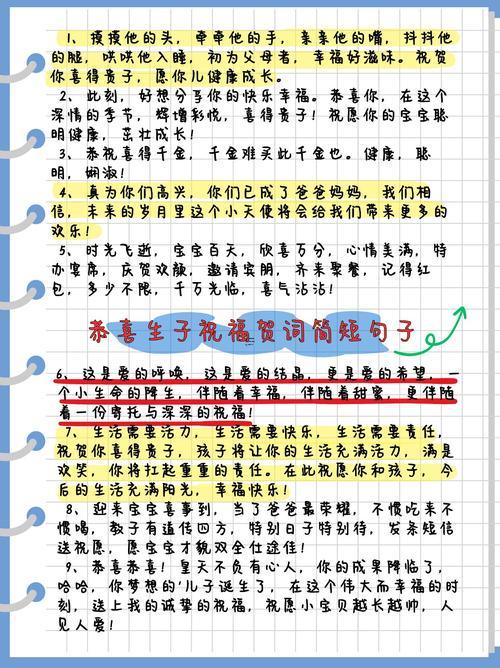 1、摸摸他的头，牵牵他的手，亲亲他的嘴，抖抖他
的腿，哄哄他入睡，初为父母者，幸福好滋味。祝贺
你喜得贵子，愿你儿健康成长。
2、此刻，好想分享你的快乐幸福。恭喜你，在这个
深情的季节，辉增彩悦，喜得贵子！祝愿你的宝宝聪
明健康，茁壮成长！
3、恭祝喜得千金，千金难买此千金也。健康，聪
明，娴淑！
4、真为你们高兴，你们已成了爸爸妈妈，我们相
信，未来的岁月里这个小天使将会给我们带来更多的
欢乐！
5、时光飞逝，宝宝百天，欣喜万分，心情美满，特
办宴席，庆贺欢颜，邀请宾朋，齐来聚餐，记得红
包，多少不限，千万光临，喜气沾沾！
恭喜生子祝福贺词简短句子
6、这是爱的呼唤，这是爱的结晶，更是爱的希望，一
个小生命的降生，伴随着幸福，伴随着甜蜜，更伴随
着一份寄托与深深的祝福！
7、生活需要活力，生活需要快乐，生活需要责任，
祝贺你喜得贵子，孩子将让你的生活充满活力，满是
欢笑，你将扛起重重的责任。在此祝愿你和孩子，今
后的生活充满阳光，幸福快乐！
8、迎来宝宝喜事到，当了爸爸最荣耀，不惯吃来不
惯喝，教子有道传四方，特别日子特别待，发条短信
送祝愿，愿宝宝才貌双全仕途佳！
9、恭喜恭喜！皇天不负有心人，你的成果降临了，
哈哈，你梦想的'儿子诞生了，在这个伟大而幸福的时
刻，送上我的诚挚的祝福，祝愿小宝贝越长越帅，人
见人爱！